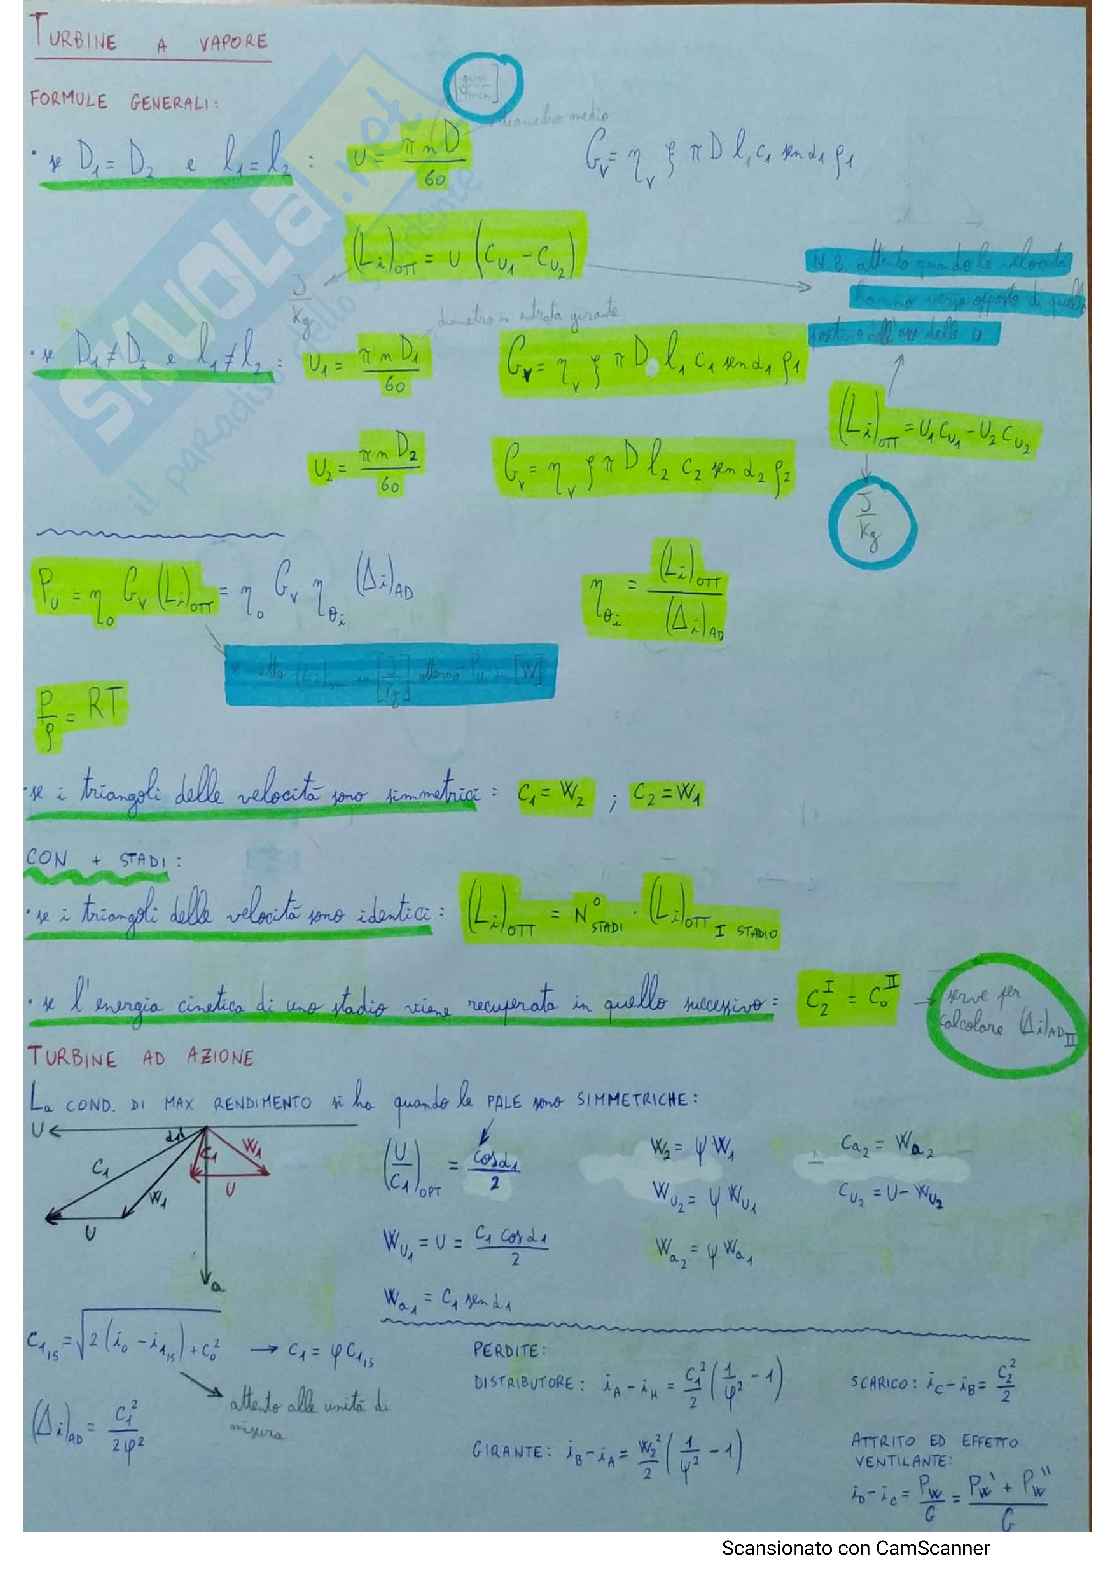 TURBINE A VAPORE
FORMULE GENERALI:
diametro medio
· se D₁ = D₂ e l₁ = l₂ : U = π n D / 60 G_V = η_V ξ π D l₁ c₁ sen α₁ ρ₁
(L_i)_OTT = U (C_U₁ - C_U₂)
J/Kg
N.B. attento quando le velocità
hanno verso opposto di quello
diametro in entrata girante
· se D₁ ≠ D₂ e l₁ ≠ l₂ : U₁ = π n D₁ / 60 G_V = η_V ξ π D l₁ c₁ sen α₁ ρ₁
(L_i)_OTT = U₁ C_U₁ - U₂ C_U₂
U₂ = π n D₂ / 60 G_V = η_V ξ π D l₂ c₂ sen α₂ ρ₂
J/Kg
P_U = η_o G_V (L_i)_OTT = η_o G_V η_θi (Δi)_AD η_θi = (L_i)_OTT / (Δi)_AD
[W]
P/ρ = RT
· se i triangoli delle velocità sono simmetrici : C₁ = W₂ ; C₂ = W₁
CON + STADI :
· se i triangoli delle velocità sono identici : (L_i)_OTT = N°_STADI · (L_i)_OTT I STADIO
· se l'energia cinetica di uno stadio viene recuperata in quello successivo : C₂^I = C₀^II → serve per
calcolare (Δi)_AD II
TURBINE AD AZIONE
La COND. DI MAX RENDIMENTO si ha quando le PALE sono SIMMETRICHE :
U α₁ C₁ W₁ C₁ W₁ U U a
(U/C₁)_OPT = cos α₁ / 2 W₂ = ψ W₁ C_a₂ = W_a₂
W_U₂ = ψ W_U₁ C_U₂ = U - W_U₂
W_U₁ = U = C₁ cos α₁ / 2 W_a₂ = ψ W_a₁
W_a₁ = C₁ sen α₁
C₁_IS = √2 (i₀ - i₁_IS) + C₀² → C₁ = φ C₁_IS
attento alle unità di
misura
(Δi)_AD = C₁² / 2φ²
PERDITE :
DISTRIBUTORE : i_A - i_H = C₁²/2 (1/φ² - 1) SCARICO : i_C - i_B = C₂²/2
GIRANTE : i_B - i_A = W₂²/2 (1/ψ² - 1)
ATTRITO ED EFFETTO
VENTILANTE :
i_D - i_C = P_W / G = P_W' + P_W'' / G
SKUOLA.net
il paradiso dello studente
Scansionato con CamScanner